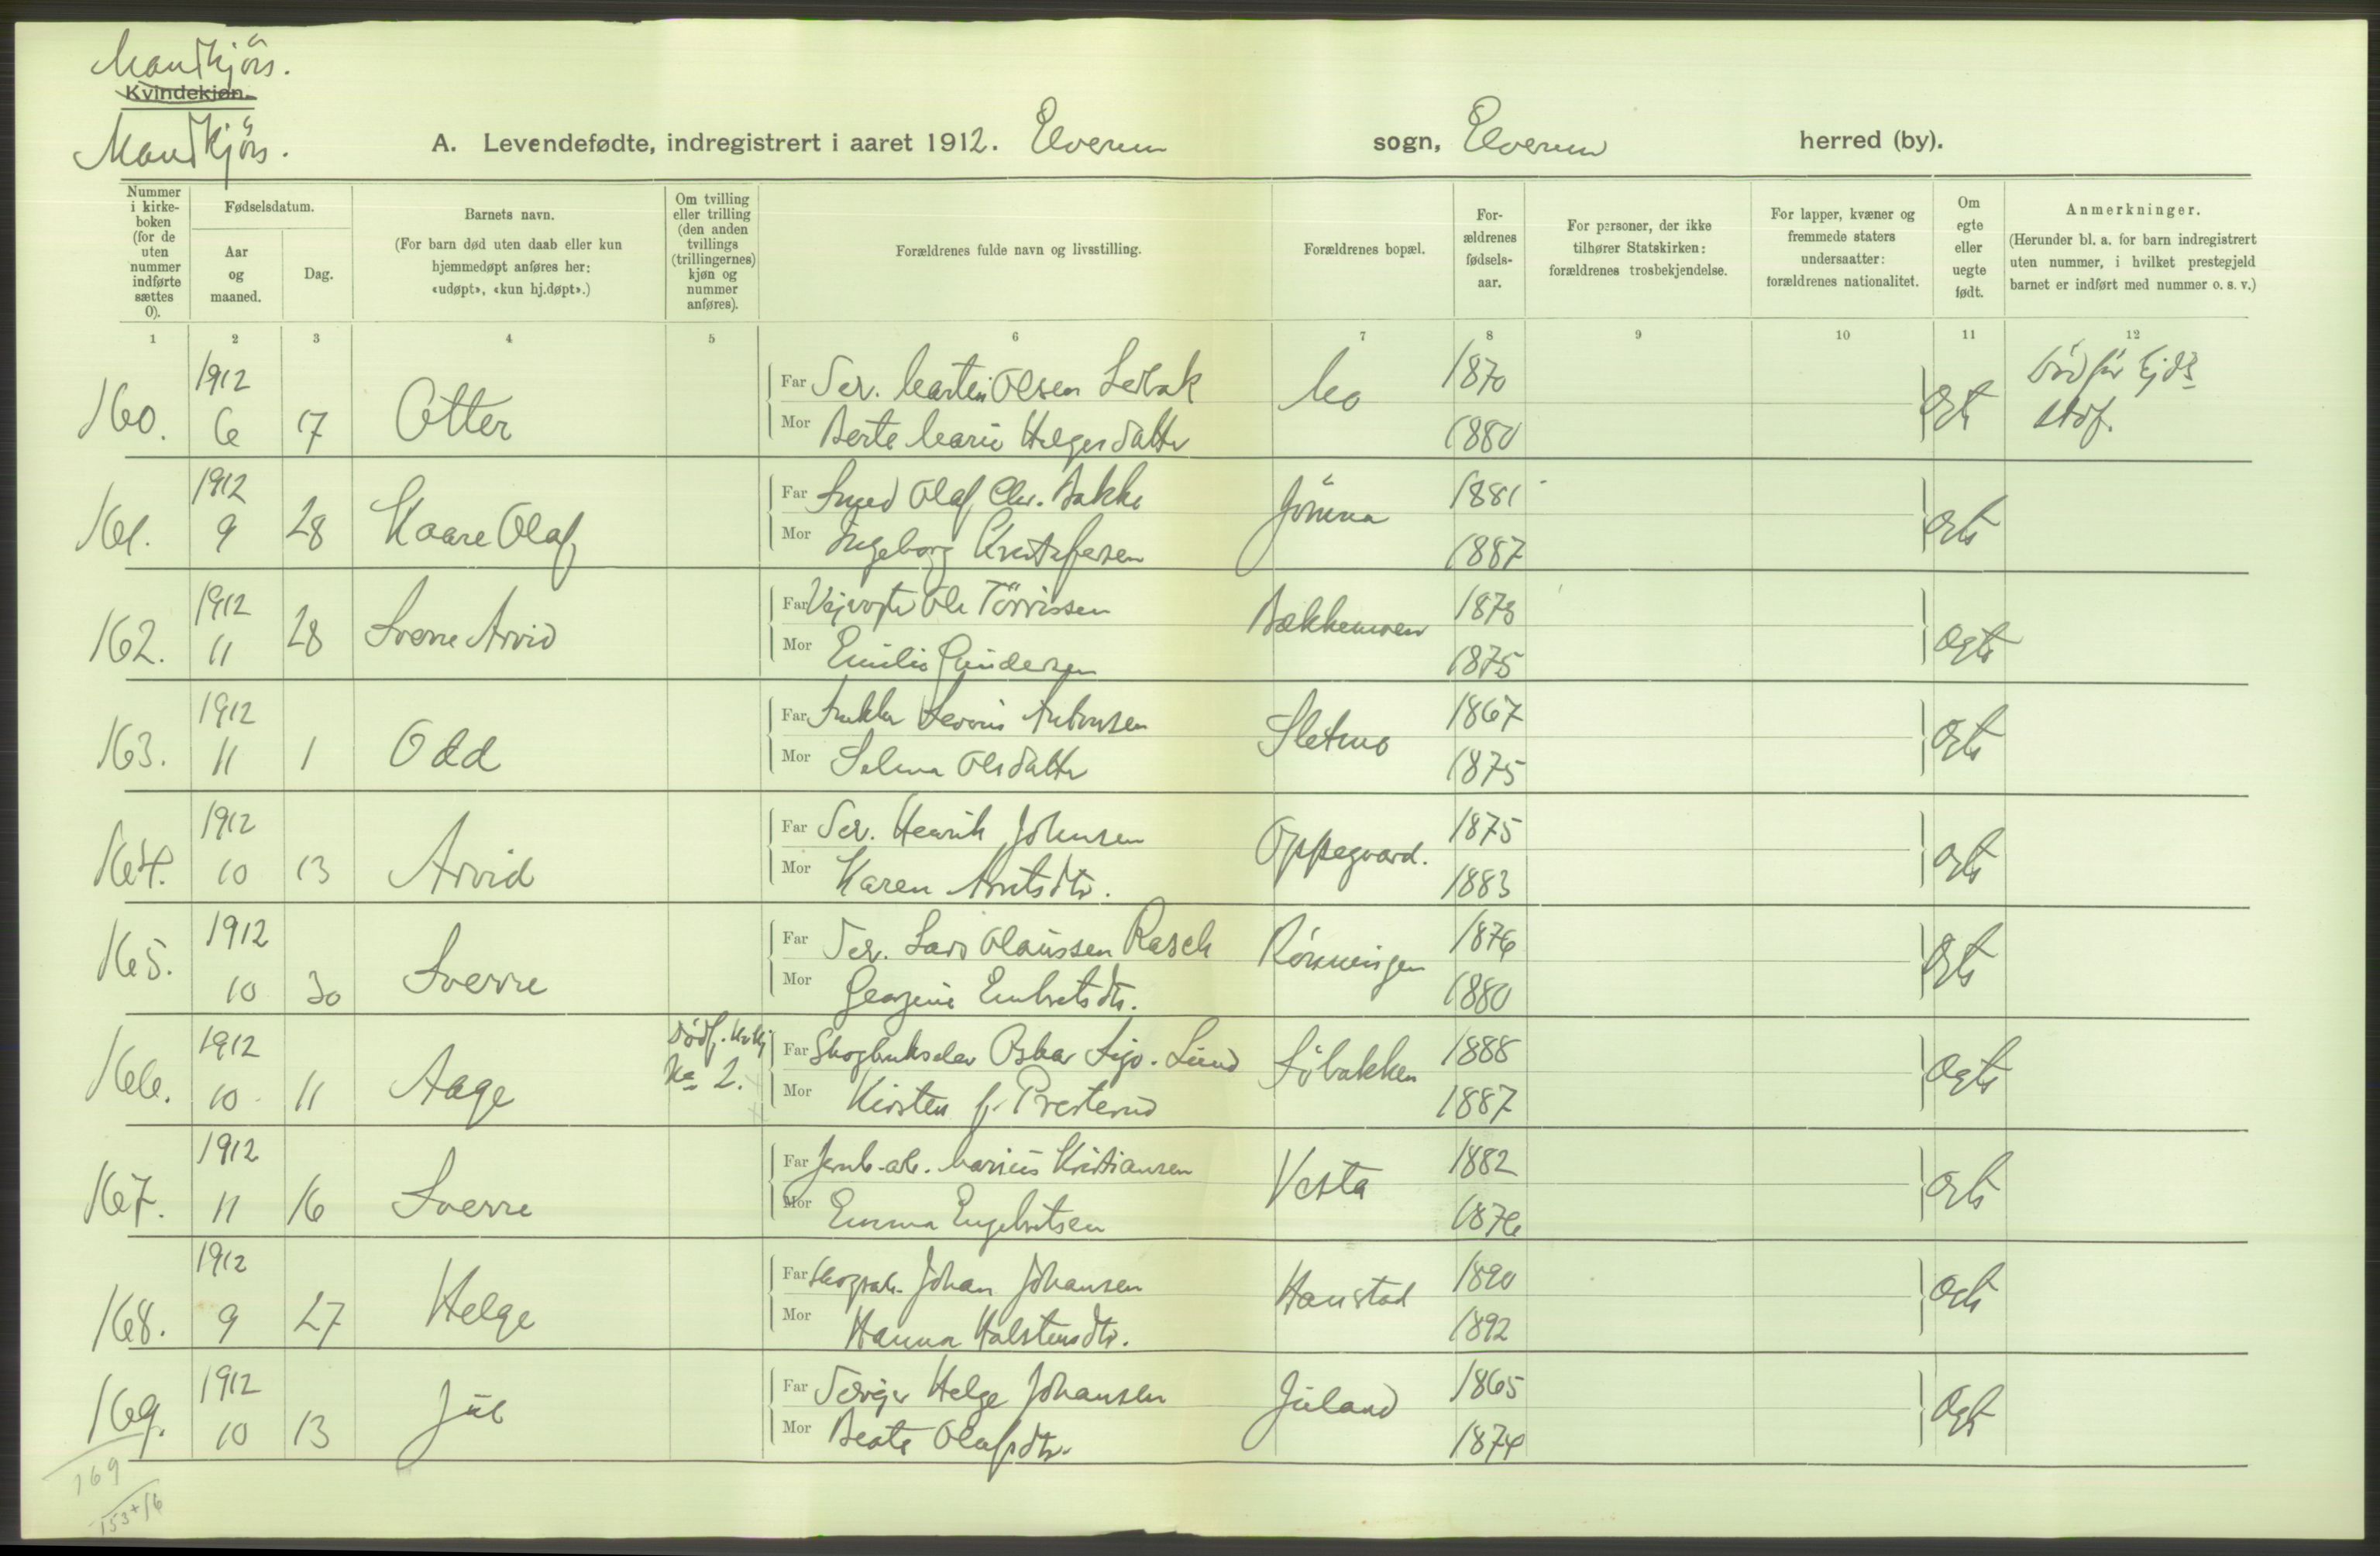 Mandkjøn.
Kvindekjøn.
Mandkjøn.
A. Levendefødte, indregistrert i aaret 1912. Elverum sogn, Elverum herred (by).
Nummer i kirkeboken (for de uten nummer indførte sættes 0).
Fødselsdatum.
Aar og maaned.
Dag.
Barnets navn.
(For barn død uten daab eller kun hjemmedøpt anføres her: «udøpt», «kun hj.døpt».)
Om tvilling eller trilling (den anden tvillings (trillingernes) kjøn og nummer anføres).
Forældrenes fulde navn og livsstilling.
Forældrenes bopæl.
For-ældrenes fødsels-aar.
For personer, der ikke tilhører Statskirken: forældrenes trosbekjendelse.
For lapper, kvæner og fremmede staters undersaatter: forældrenes nationalitet.
Om egte eller uegte født.
Anmerkninger.
(Herunder bl. a. for barn indregistrert uten nummer, i hvilket prestegjeld barnet er indført med nummer o. s. v.)
1 2 3 4 5 6 7 8 9 10 11 12
160. 1912 6 17 Otter
Far Martin Olsen Mo 1870
Mor Berte Marie Helgesdatter 1880
161. 1912 9 28 Kaare Olaf
Far Smed Olaf Chr. Bakke Jømna 1881
Mor Ingeborg Kristofersen 1887
162. 1912 11 28 Sverre Arvid
Far Ole Tørrissen Bækkemoen 1873
Mor Emilie Gundersen 1875 Egte
163. 1912 11 1 Odd
Far Severin Antonsen Sletmo 1867
Mor Selma Olsdatter 1875
164. 1912 10 13 Arvid
Far Henrik Johnsen Oppegaard. 1875
Mor Karen Arntsdtr. 1883
165. 1912 10 30 Sverre
Far Lars Olaussen Rasch Rønningen 1876
Mor Georgine Embretsdtr. 1880
166. 1912 10 11 Aage Dødf. Kvkj No 2.
Far Oskar Lund Søbakken 1888
Mor Kirsten f. Presterud 1887 Egte
167. 1912 11 16 Sverre
Far Jernb.arb. Marius Kristiansen Vesta 1882
Mor Emma Engebretsen 1876
168. 1912 9 27 Helge
Far Johan Johansen Hanstad 1890
Mor Hanna Halstensdtr. 1892
169. 1912 10 13 Jul
Far Helge Johansen Juland 1865
Mor Beate Olafsdtr. 1874
169
153+16